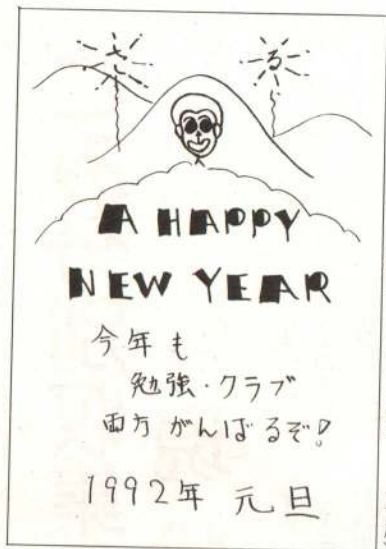 さ る
A HAPPY
NEW YEAR
今年も
勉強・クラブ
両方がんばるぞ!
1992年 元旦